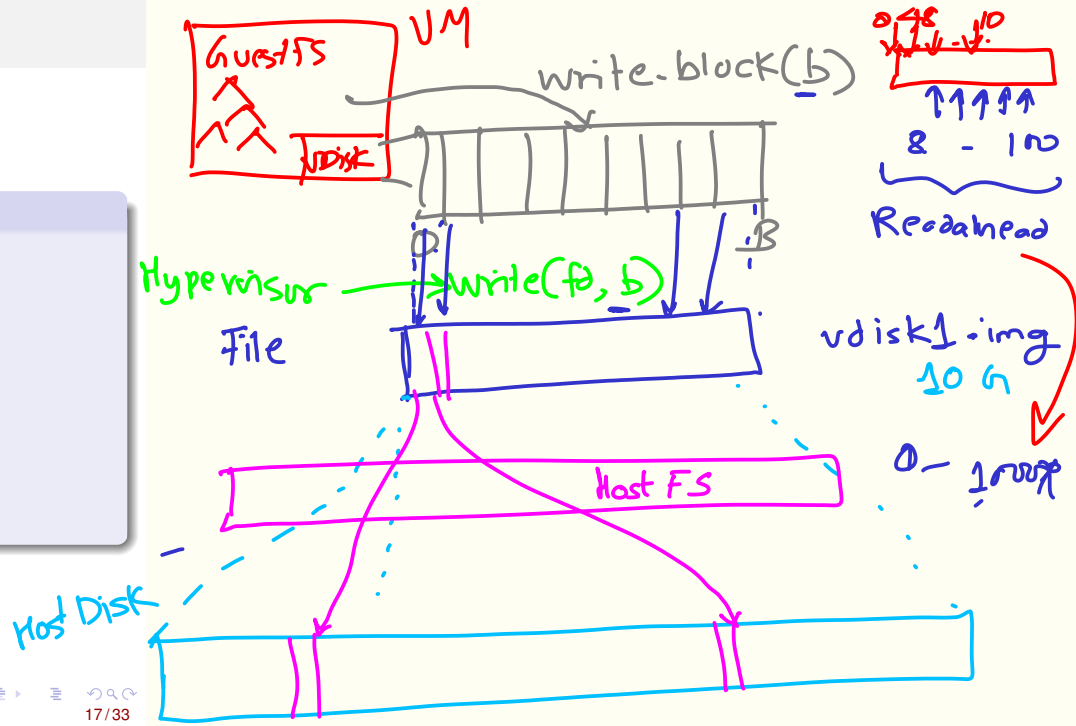 VM
GuestFS
vDisk
write-block(b)
0 48 10
8 - 100
Readahead
0
B
Hypervisur
write(fd, b)
File
vdisk1.img
10 G
Host FS
Host Disk
17/33